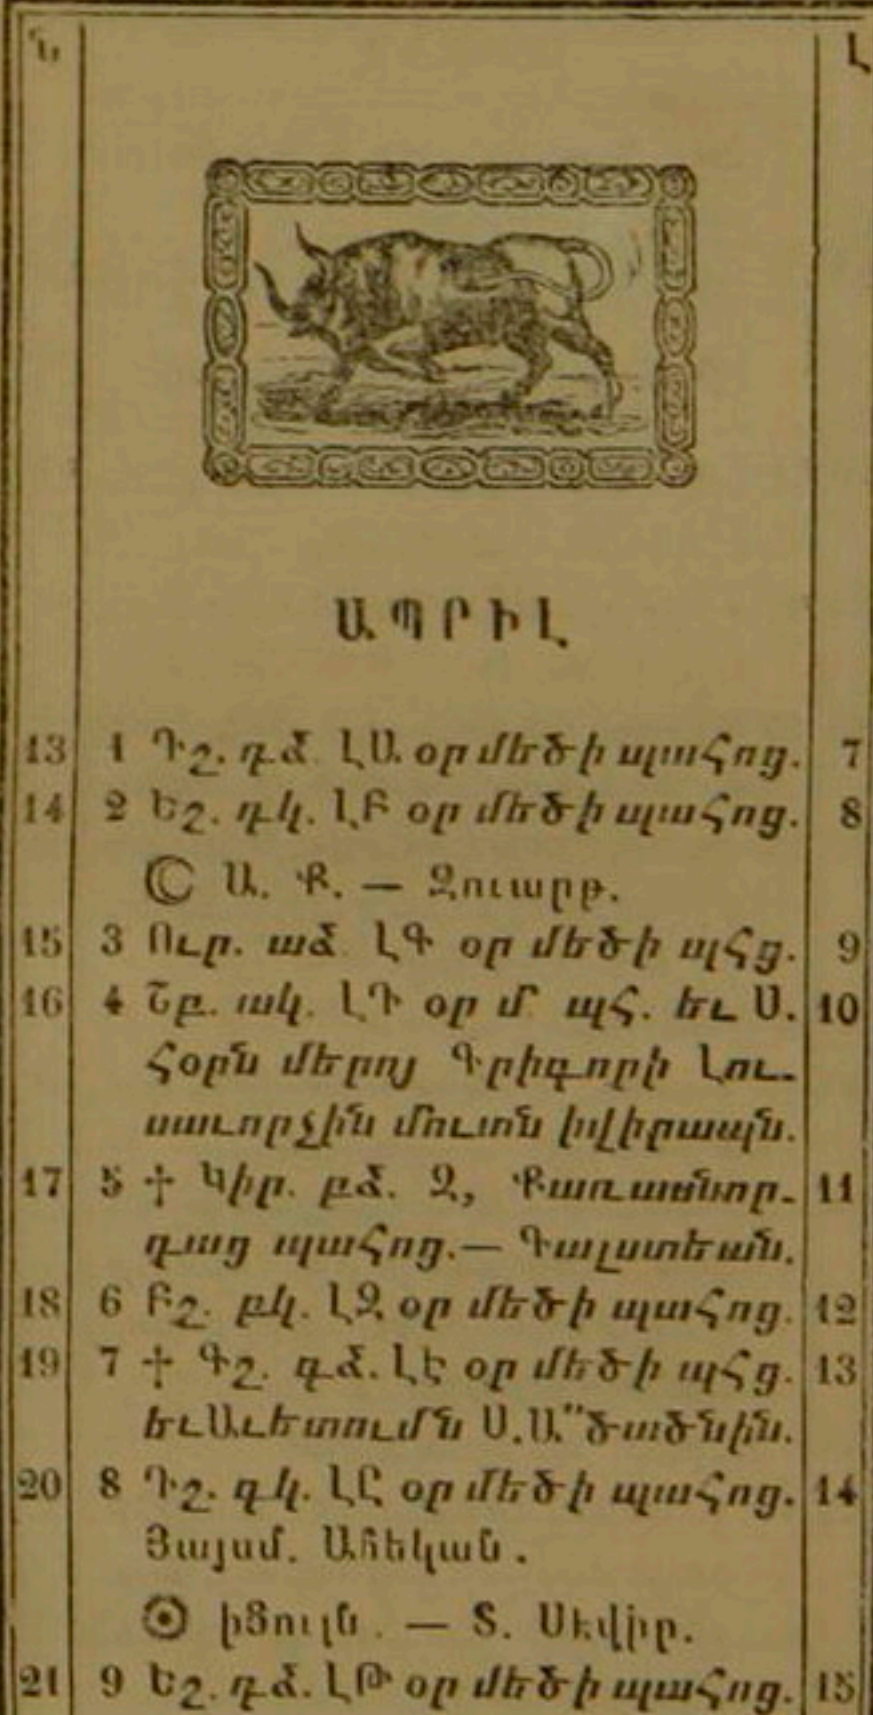 Ն Լ
ԱՊՐԻԼ
13 1 Դշ. դձ. ԼԱ օր մեծի պահոց. 7
14 2 Եշ. դկ. ԼԲ օր մեծի պահոց. 8
Ա. Ք. — Զուարթ.
15 3 Ուր. աձ. ԼԳ օր մեծի պհց. 9
16 4 Շբ. ակ. ԼԴ օր մ՛ պհ. եւ Ս. 10
Հօրն մերոյ Գրիգորի Լու-
սաւորչին մուտն խվիրապն.
17 5 ✝ Կիր. բձ. Զ, Քառասնոր- 11
դաց պահոց.— Գալստեան.
18 6 Բշ. բկ. ԼԶ օր մեծի պահոց. 12
19 7 ✝ Գշ. գձ. ԼԷ օր մեծի պհց. 13
եւ Աւետումն Ս. Ա՟ծածնին.
20 8 Դշ. գկ. ԼԸ օր մեծի պահոց. 14
Յայսմ. Ահեկան.
☉ իՑուլն. — Տ. Սեվիր.
21 9 Եշ. դձ. ԼԹ օր մեծի պահոց. 15